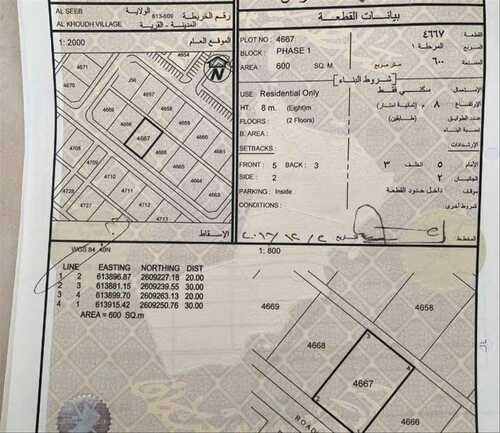 AL SEEB
الولاية
AL KHOUDH VILLAGE
المدينة - القرية
613-609
رقم الخريطة
1: 2000
الموقع العام
N
4654
4671
4665
4666
4658
4668
4667
4666
4708
4709
4710
4711
4712
4713
4727
الإسقاط
بيانات القطعة
PLOT NO : 4667
٤٦٦٧
القطعة
BLOCK : PHASE 1
المرحلة ١
AREA : 600 SQ. M.
متر مربع
٦٠٠
المساحة
شروط البناء
USE : Residential Only
سكني فقط
الإستعمال
HT : 8 m. (Eight)m
٨ م (ثمانية أمتار)
الإرتفاع
FLOORS : (2 Floors)
(طابقين)
عدد الطوابق
B. AREA :
نسبة البناء
SETBACKS :
الإرتدادات
FRONT : 5 BACK : 3
٣
الخلف
٥
الأمام
SIDE : 2
٢
الجانبان
PARKING : Inside
داخل حدود القطعة
موقف
CONDITIONS :
شروط أخرى
المخطط
WGS 84 40N
1: 800
LINE EASTING NORTHING DIST
1 2 613896.87 2609227.18 20.00
2 3 613881.15 2609239.55 30.00
3 4 613899.70 2609263.13 20.00
4 1 613915.42 2609250.76 30.00
AREA = 600 SQ.m
4669
4668
4658
3
4
4667
2
1
4666
ROAD